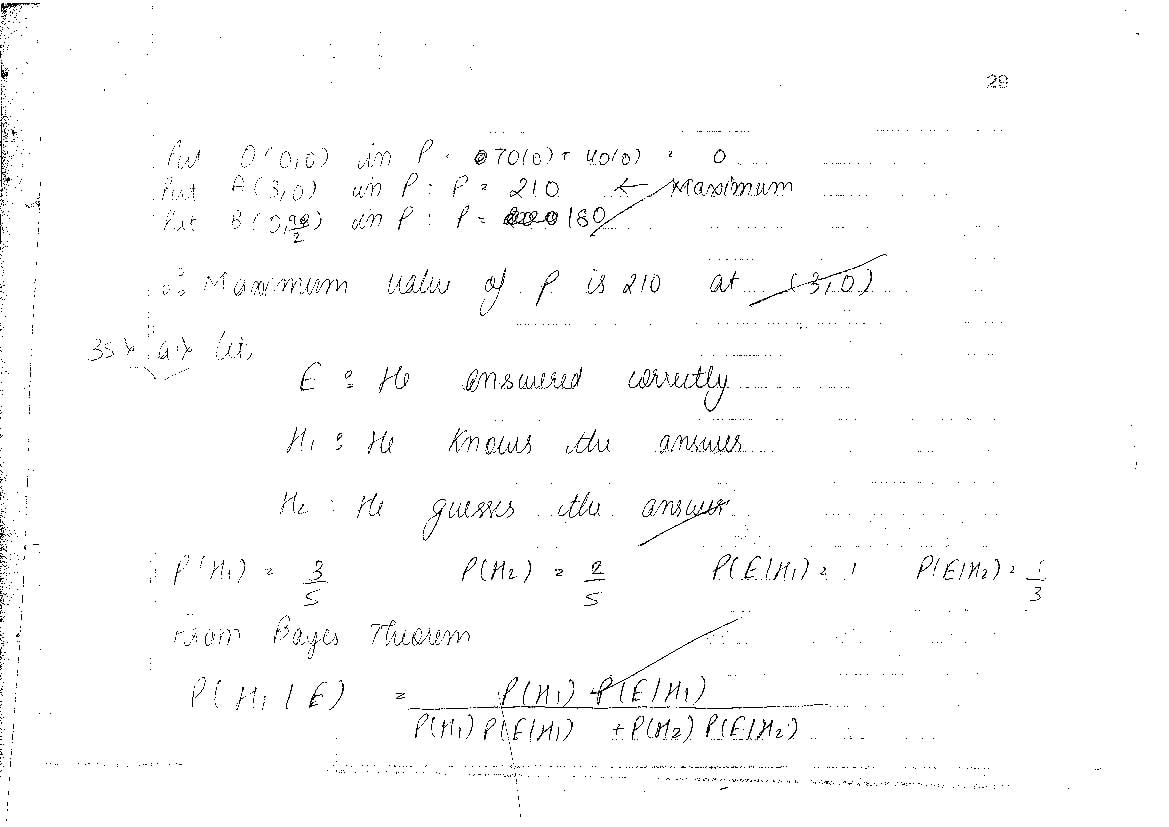 29
Put O(0,0) in P = 70(0) + 40(0) = 0
Put A(3,0) in P : P = 210 ← Maximum
Put B(0, /2) in P : P = 180
∴ Maximum value of P is 210 at (3,0)
35> a> Let,
E : He answered correctly
H₁ : He knows the answer
H₂ : He guesses the answer
P(H₁) = 3/5 P(H₂) = 2/5 P(E/H₁) = 1 P(E/H₂) = 1/3
From Bayes Theorem
P(H₁/E) = P(H₁) P(E/H₁)
P(H₁) P(E/H₁) + P(H₂) P(E/H₂)